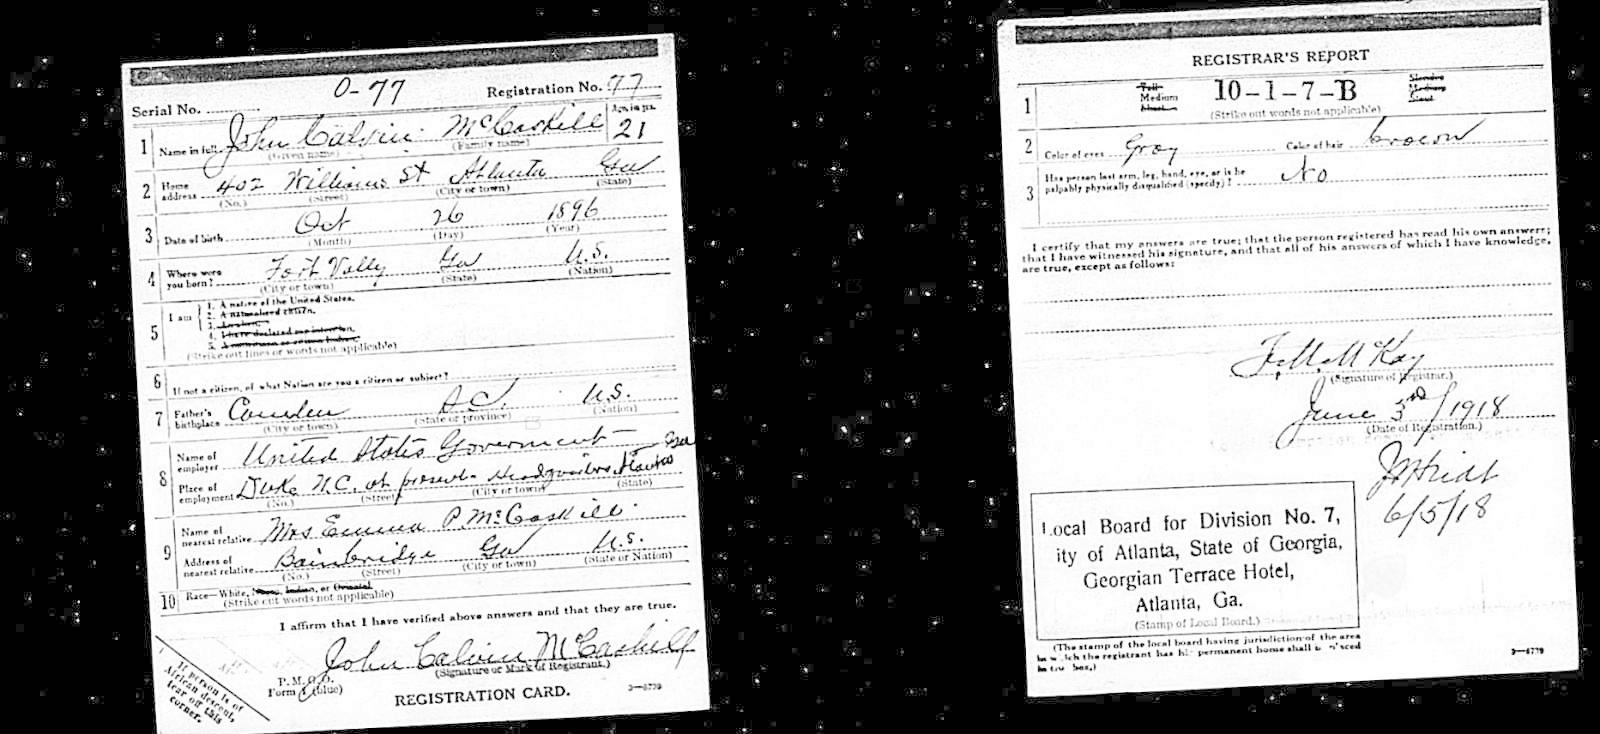 Serial No. 0-77 Registration No. 77
1 Name in full John Calvin McCaskill Age in yrs. 21
(Given name) (Family name)
2 Home address 402 Williams St Atlanta Ga
(No.) (Street) (City or town) (State)
3 Date of birth Oct 26 1896
(Month) (Day) (Year)
4 Where were you born? Fort Vally Ga U.S.
(City or town) (State) (Nation)
5 I am
1. A native of the United States.
2. A naturalized citizen.
3. An alien.
4. I have declared my intention.
5. A noncitizen or citizen Indian.
(Strike out lines or words not applicable)
6 If not a citizen, of what Nation are you a citizen or subject?
7 Father's birthplace Camden S.C. U.S.
(City or town) (State or province) (Nation)
8 Name of employer United States Government
Place of employment Duke N.C. at present Headquarters Atlanta Ga
(No.) (Street) (City or town) (State)
9 Name of nearest relative Mrs Emma P. McCaskill.
Address of nearest relative Bainbridge Ga U.S.
(No.) (Street) (City or town) (State or Nation)
10 Race—White, Negro, Indian, or Oriental
(Strike out words not applicable)
I affirm that I have verified above answers and that they are true.
John Calvin McCaskill
(Signature or Mark of Registrant.)
P. M. G. O.
Form 1 (blue)
REGISTRATION CARD.
3—6779
If person is of
African descent,
tear off this
corner.
REGISTRAR'S REPORT
1 Tall Medium Short 10-1-7-B Slender Medium Stout
(Strike out words not applicable)
2 Color of eyes Gray Color of hair brown
3 Has person lost arm, leg, hand, eye, or is he
palpably physically disqualified (specify)? No
I certify that my answers are true; that the person registered has read his own answers;
that I have witnessed his signature, and that all of his answers of which I have knowledge,
are true, except as follows:
McKay
(Signature of Registrar.)
June 5 / 1918
(Date of Registration.)
6/5/18
Local Board for Division No. 7,
ity of Atlanta, State of Georgia,
Georgian Terrace Hotel,
Atlanta, Ga.
(Stamp of Local Board.)
(The stamp of the local board having jurisdiction of the area
in which the registrant has his permanent home shall be placed
in this box.)
3—6779